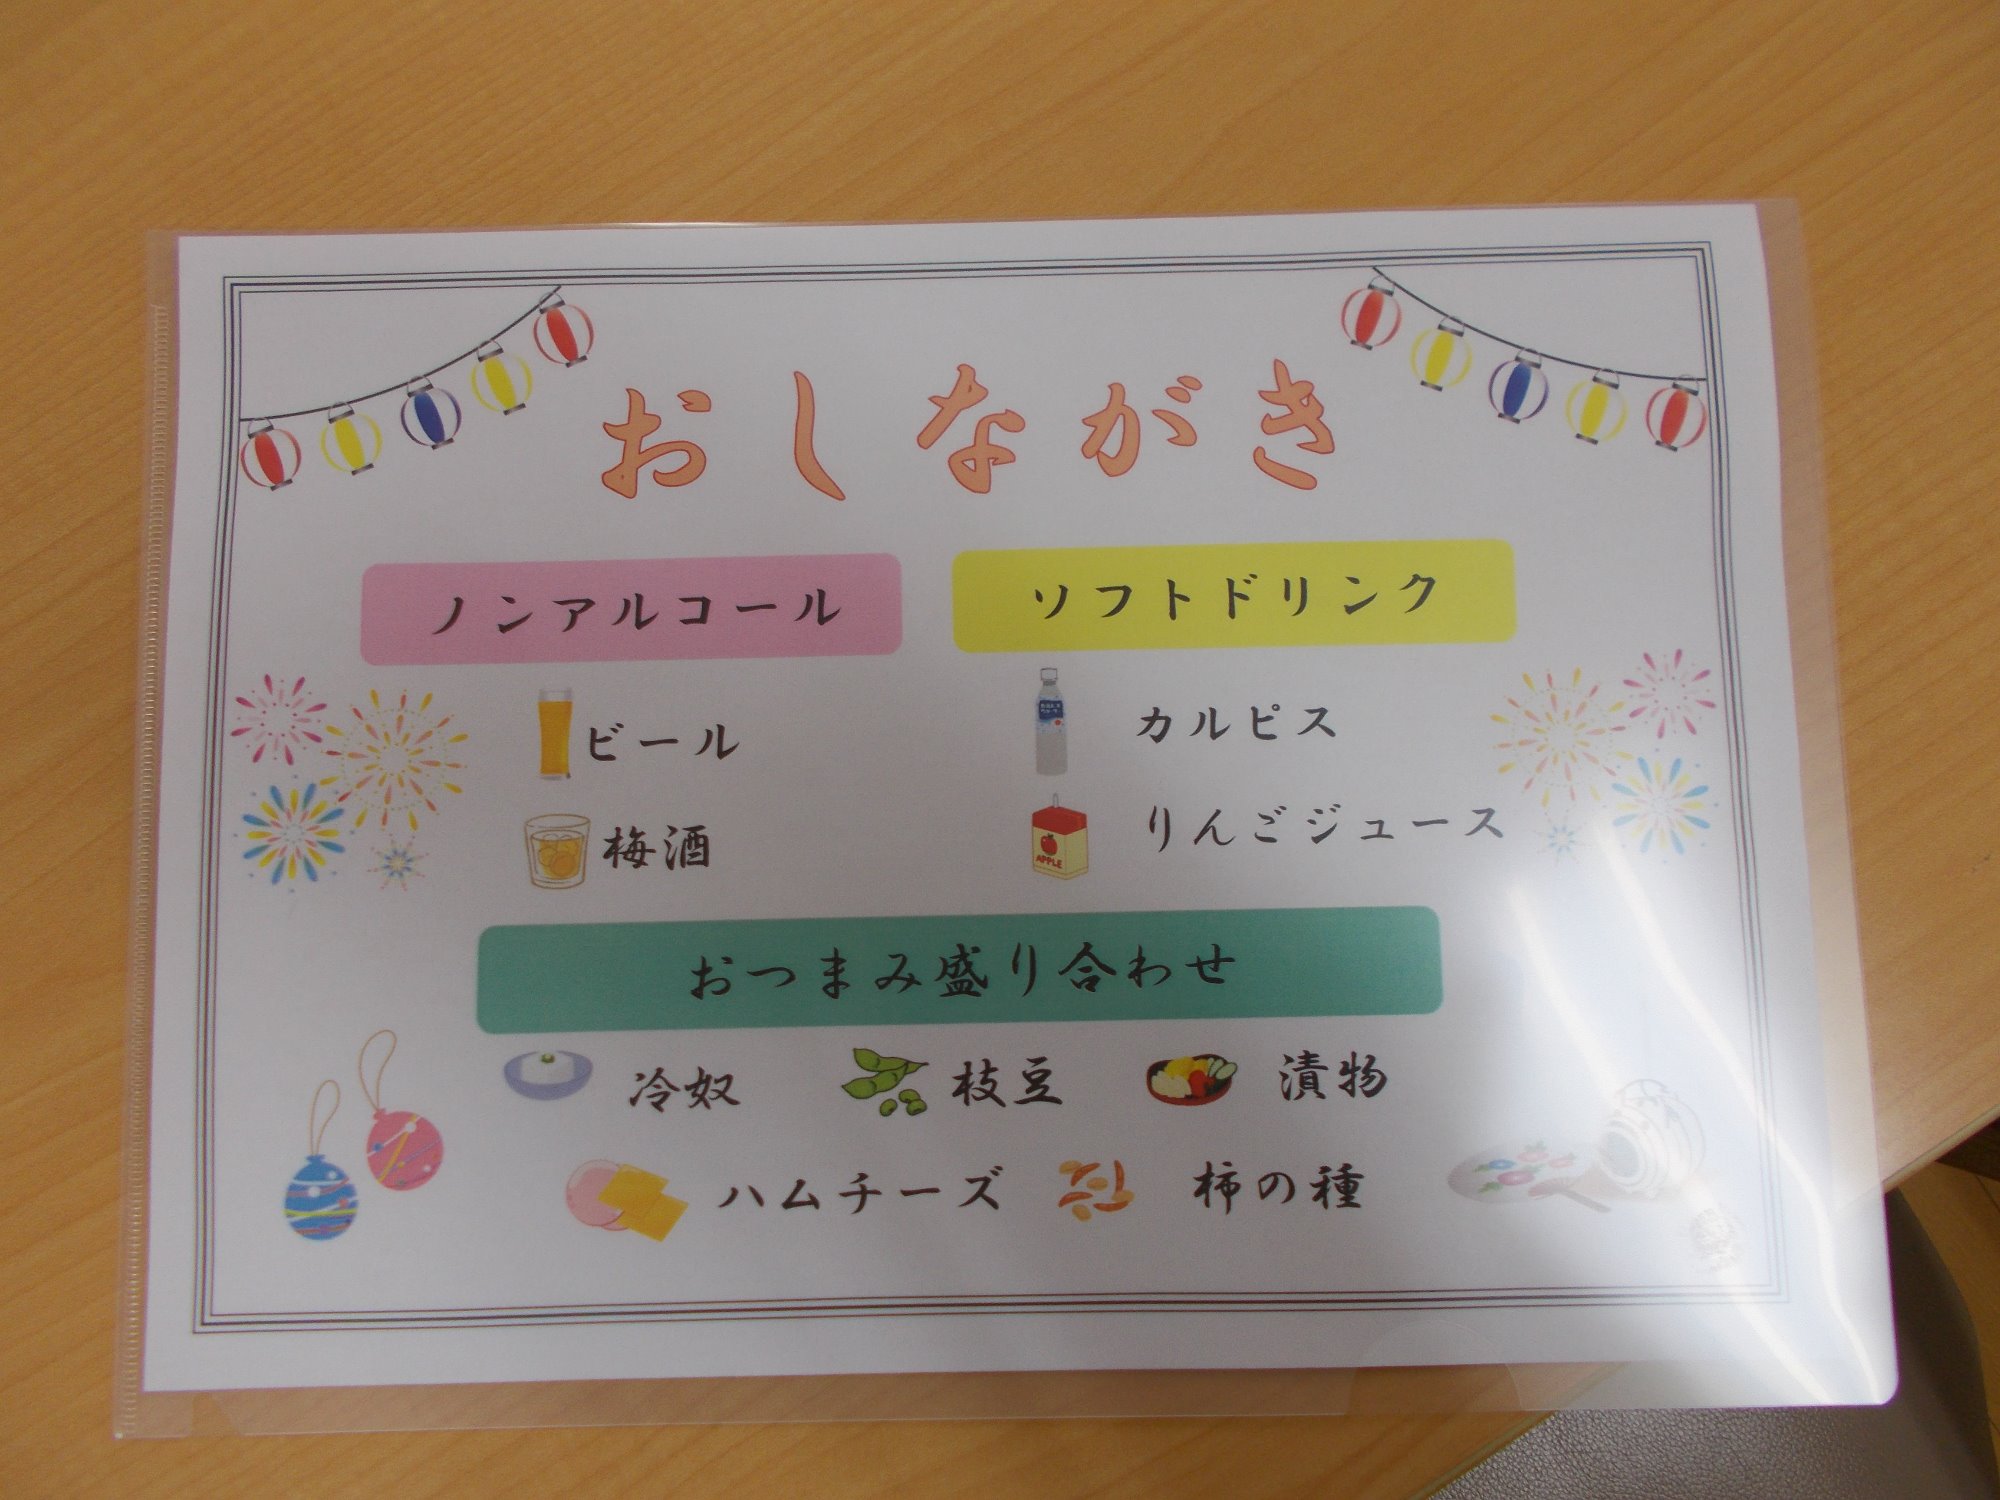 おしながき
ノンアルコール
ソフトドリンク
ビール
カルピス
梅酒
APPLE
りんごジュース
おつまみ盛り合わせ
冷奴
枝豆
漬物
ハムチーズ
柿の種